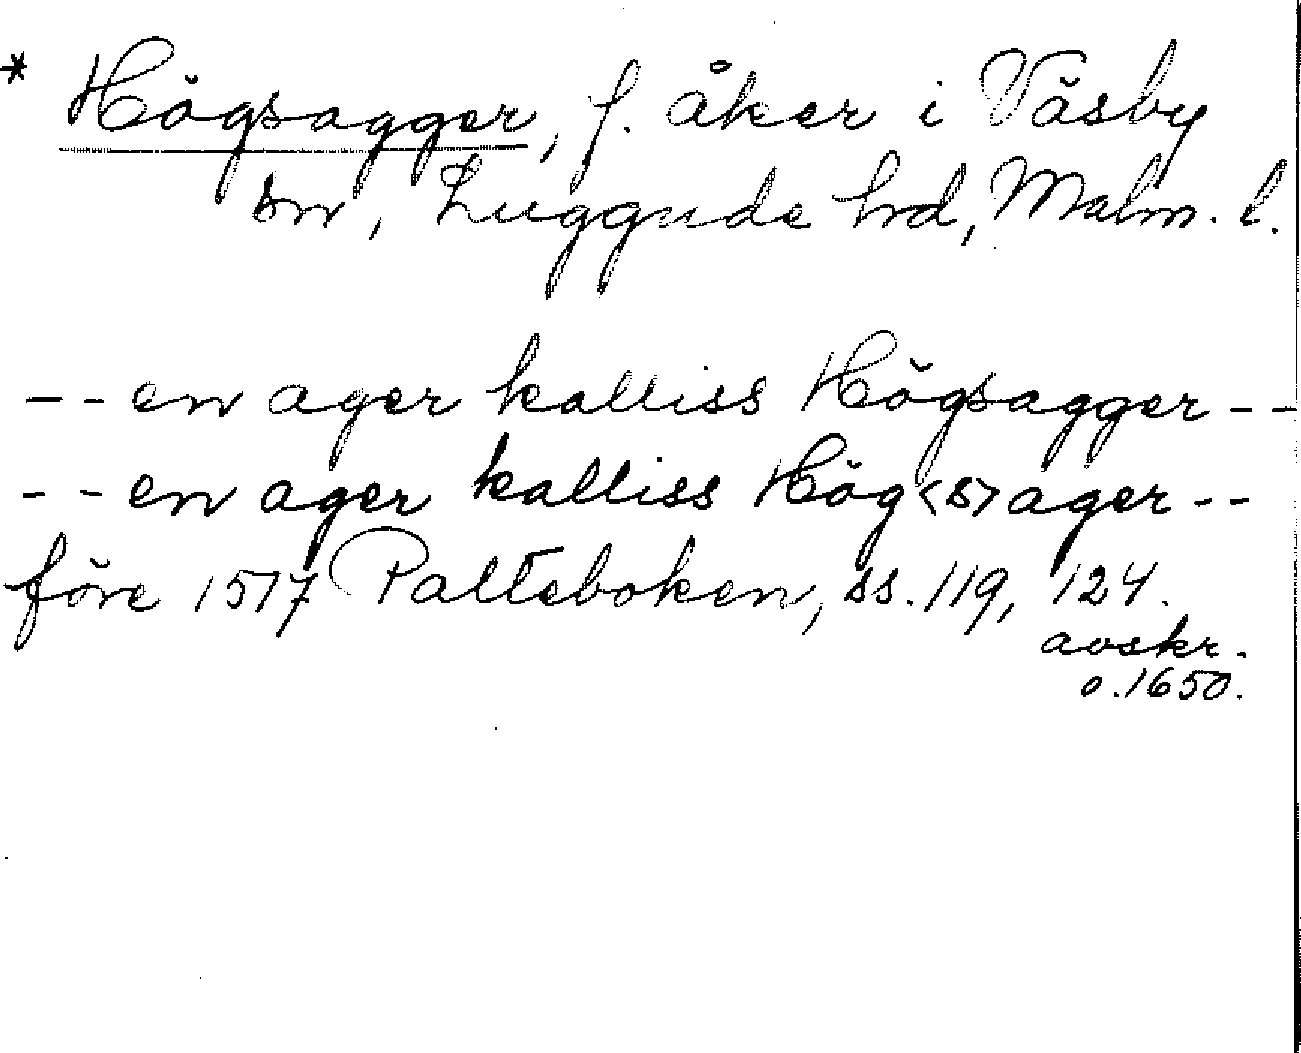 * Högsagger, f. åker i Väsby
sn, Luggude hrd, Malm. l.
-- en ager kalliss Högsagger --
-- en ager kalliss Hög<s>ager --
före 1517 Palteboken, ss. 119, 124.
avskr.
o. 1650.